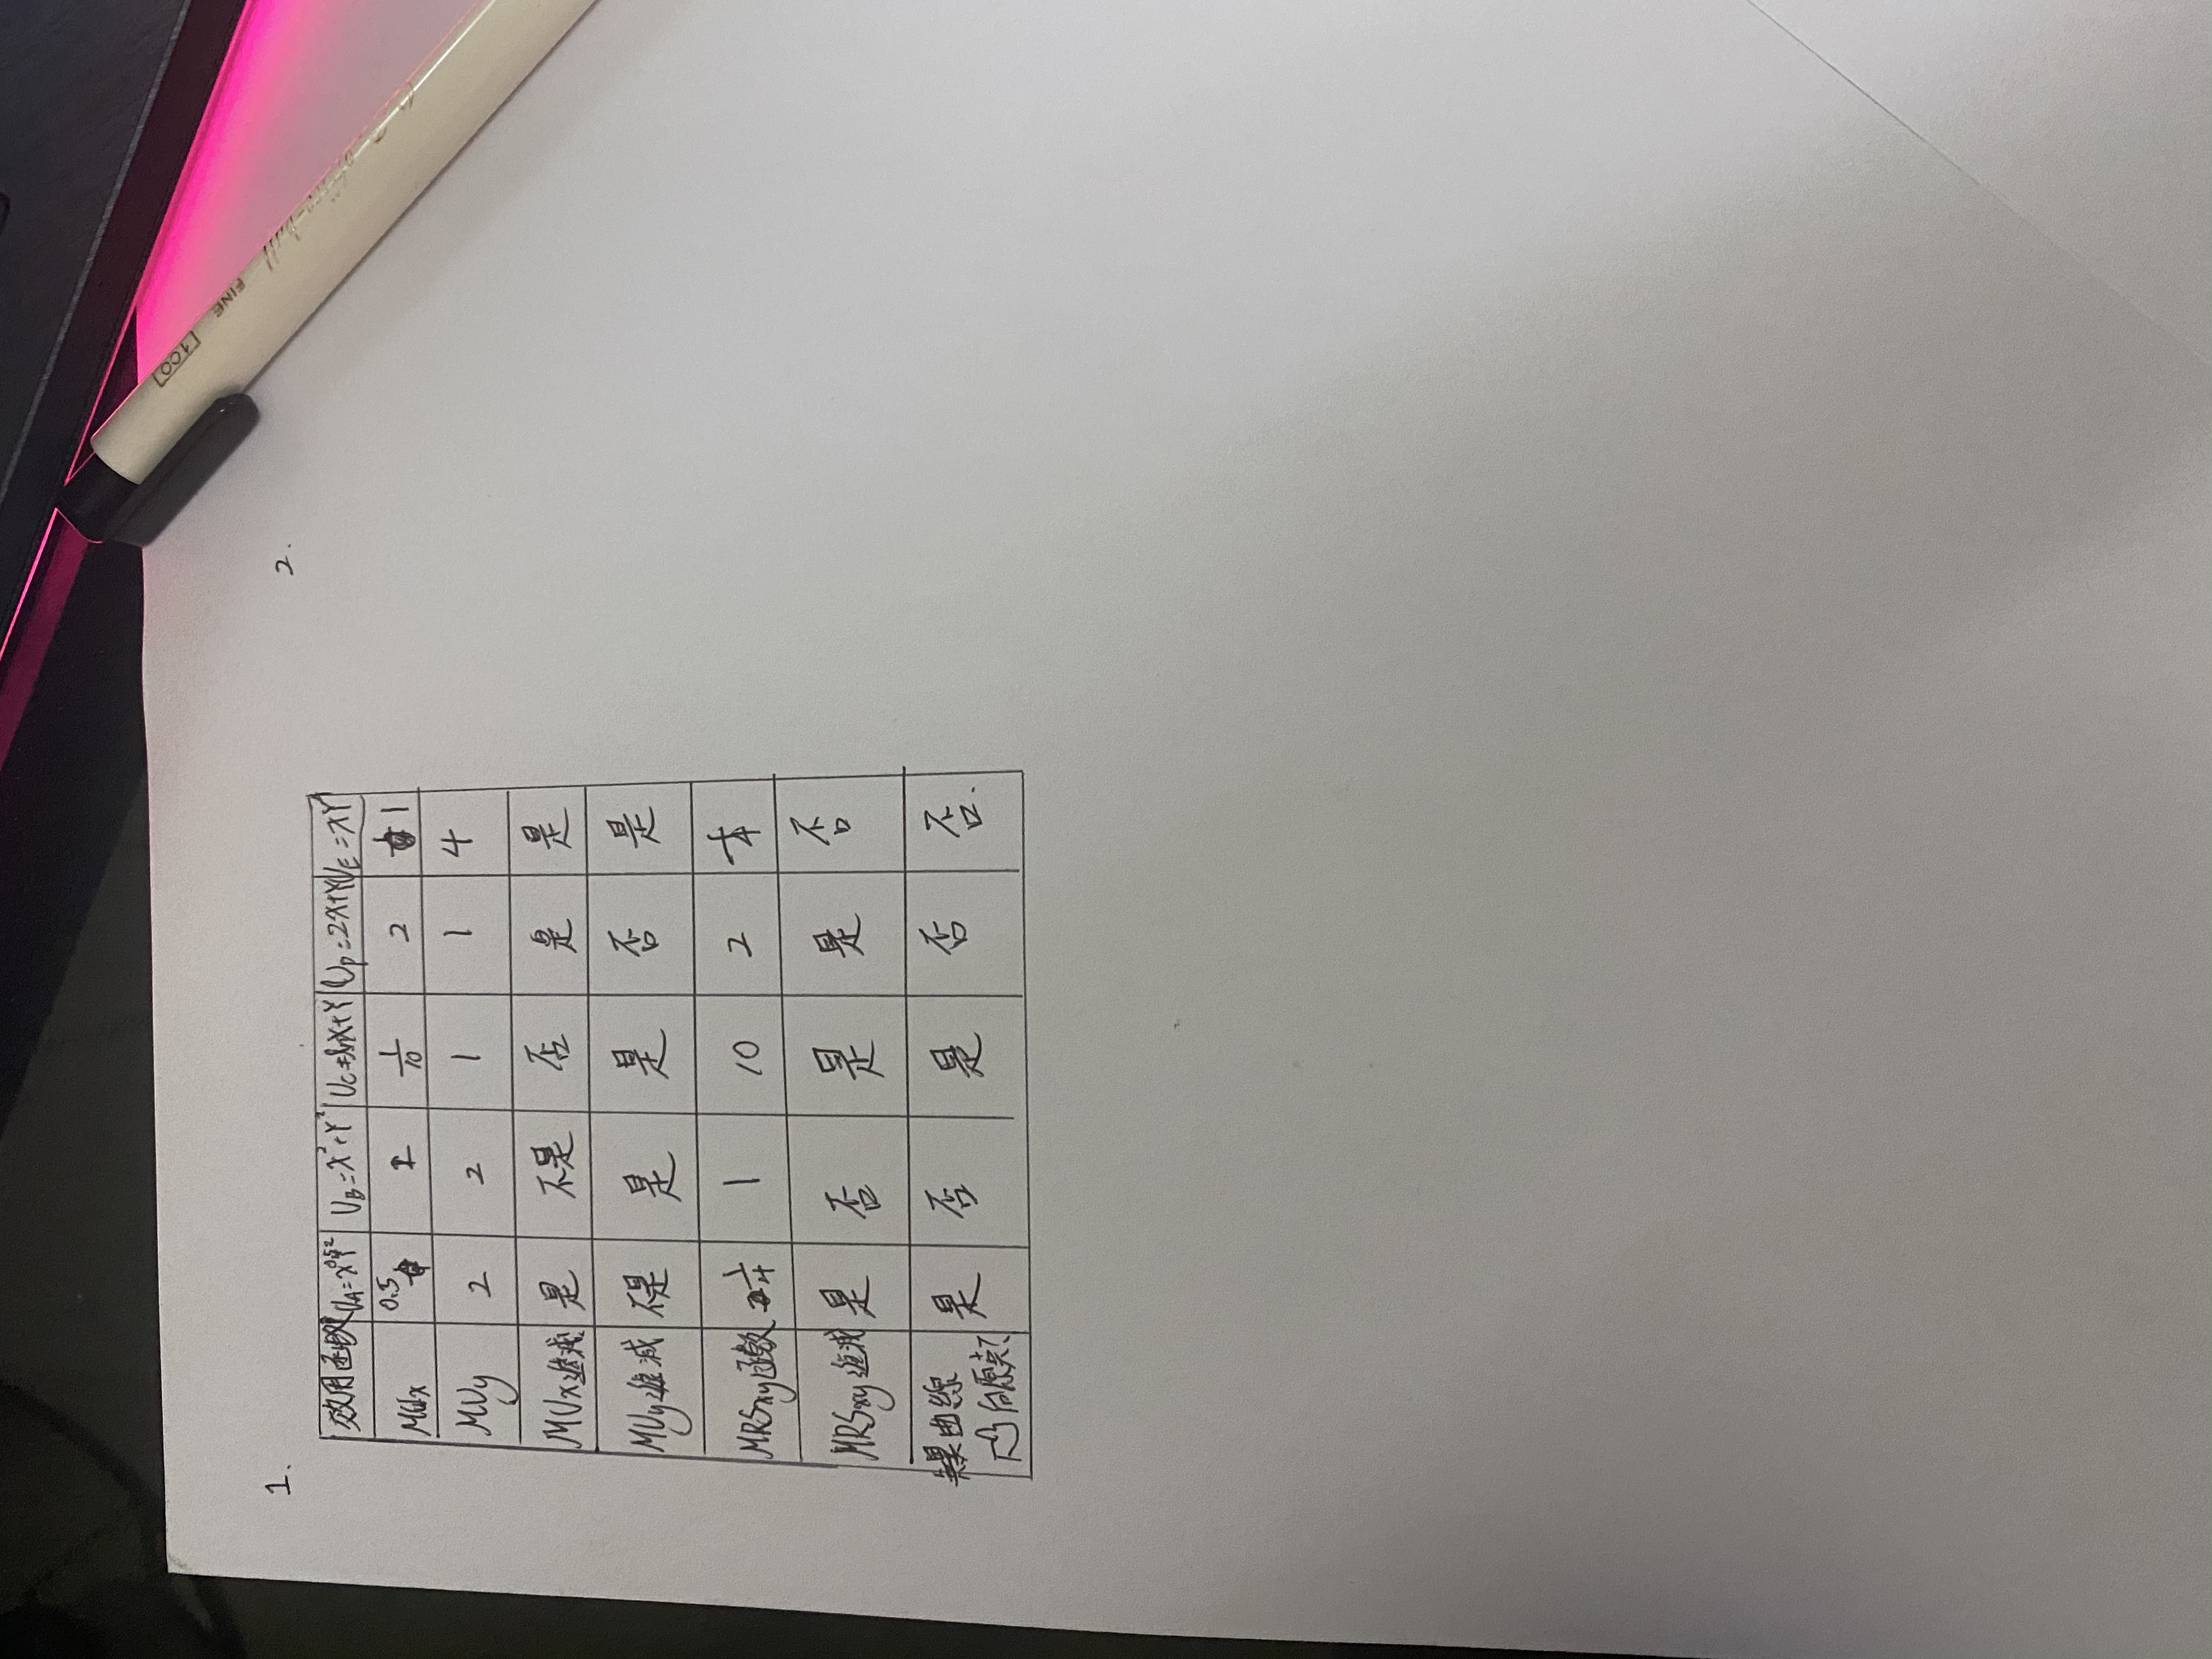 1.
2.
效用函数 U_A=X^0.5Y^2 U_B=X^2+Y^2 U_C=lnX+Y U_D=2X+Y U_E=XY
MUx 0.5 2 1/10 2 1
MUy 2 2 1 1 4
MUx递减 是 不是 否 是 是
MUy递减 不是 是 是 否 是
MRSxy函数 1/4 1 10 2 1/4
MRSxy递减 是 否 是 是 否
無異曲線 是 否 是 否 否.
凸向原点?
100
FINE